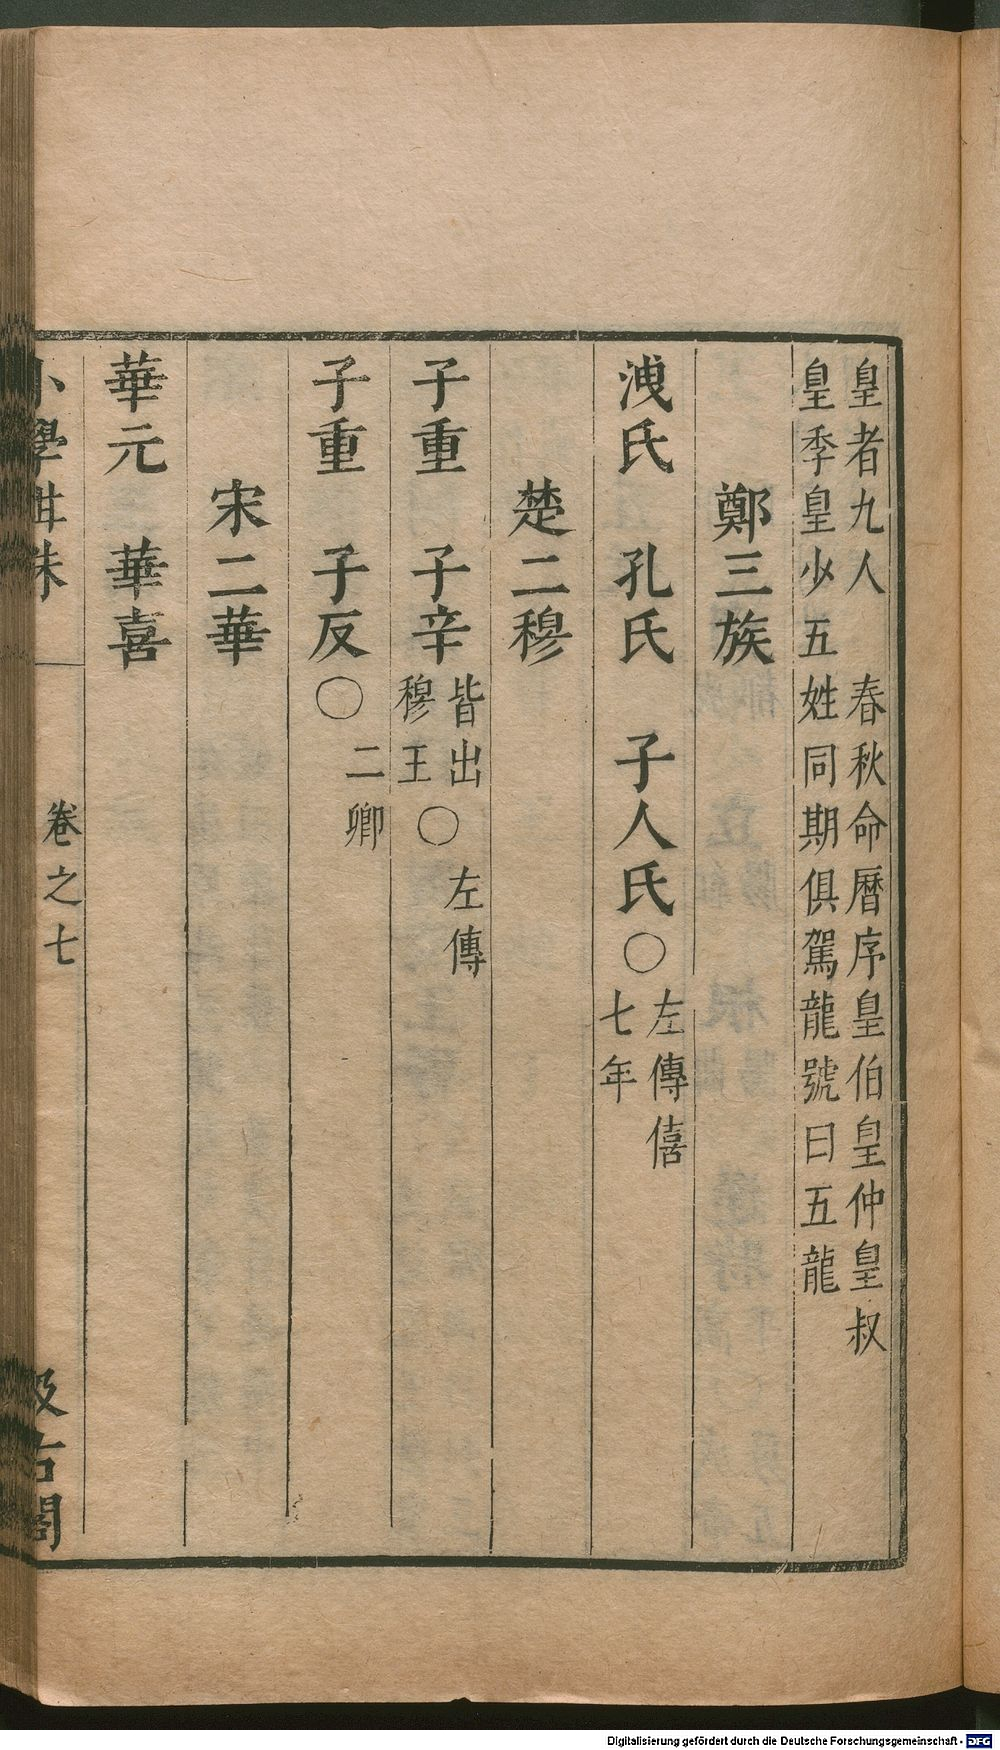 皇者九人　春秋命曆序皇伯皇仲皇叔
皇季皇少五姓同期俱駕龍號曰五龍
鄭三族
洩氏　孔氏　子人氏〇左傳僖
七年
楚二穆
子重　子辛皆出
穆王〇左傳
子重　子反〇二卿
宋二華
華元　華喜
小學紺珠　卷之七　汲古閣
Digitalisierung gefördert durch die Deutsche Forschungsgemeinschaft - DFG